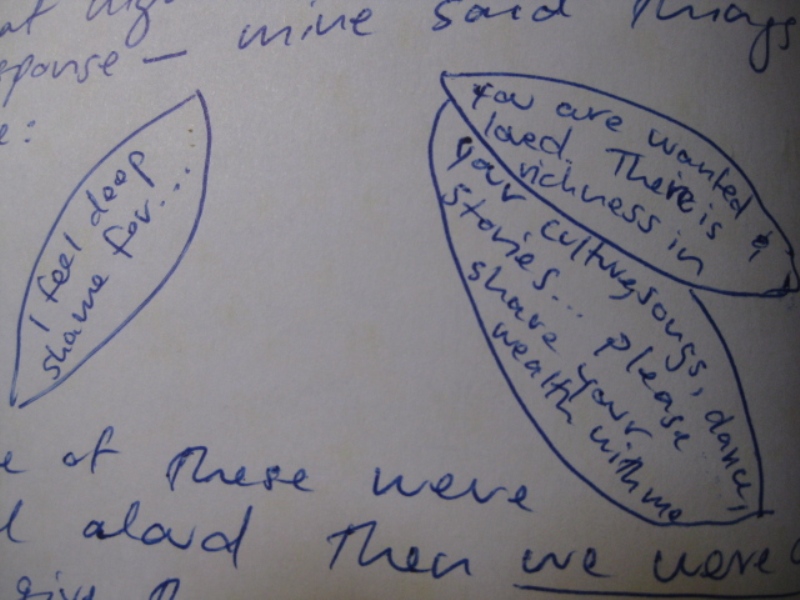 mine said things
sponse —
e:
I feel deep
shame for...
You are wanted &
loved. There is
richness in
your culture, songs, dance,
stories... please
share your
wealth with me
e of these were
d aloud then we were
give